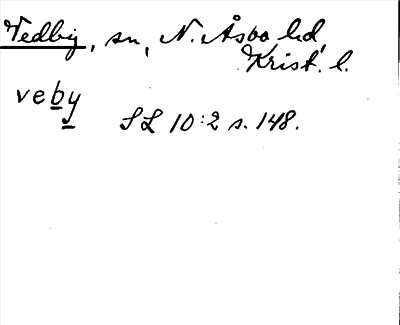 Vedby, sn, N. Åsbo hd,
Krist. l.
veby
SL 10:2 s. 148.